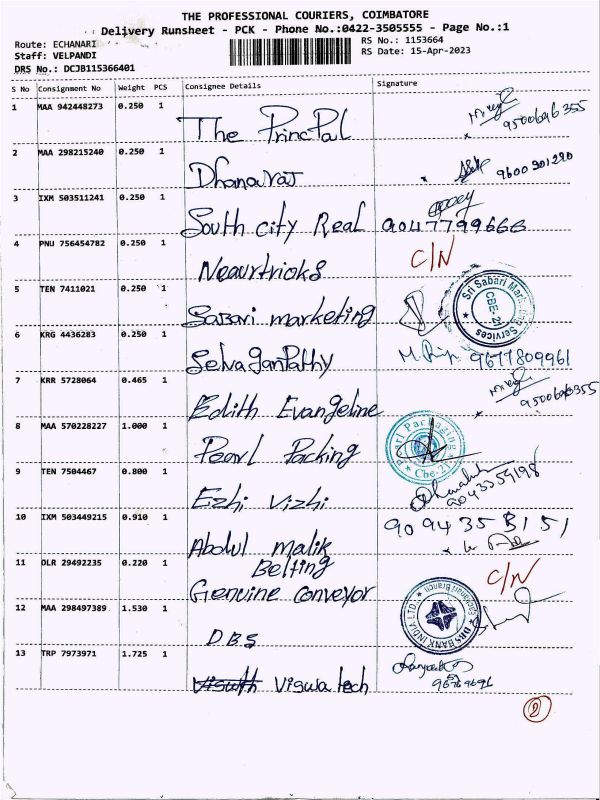 THE PROFESSIONAL COURIERS, COIMBATORE
Delivery Runsheet - PCK - Phone No.:0422-3505555 - Page No.:1
Route: ECHANARI RS No.: 1153664
Staff: VELPANDI RS Date: 15-Apr-2023
DRS No.: DCJB115366401
S No Consignment No Weight PCS Consignee Details Signature
1 MAA 942448273 0.250 1 The PrincPal 9500696355
2 MAA 298215240 0.250 1 Dhanaraj 9600901290
3 IXM 503511241 0.250 1 South city Real 9047799666
4 PNU 756454782 0.250 1 Neaurtrioks C/N
5 TEN 7411021 0.250 1 Sabari marketing Sri Sabari Marketing Services CBE-21
6 KRG 4436283 0.250 1 SelvaganPathy 9677809961
7 KRR 5728064 0.465 1 Edith Evangeline 9500696355
8 MAA 570228227 1.000 1 Pearl Packing Pearl Packaging Cbe-21
9 TEN 7504467 0.800 1 Ezhi Vizhi
10 IXM 503449215 0.910 1 Abdul malik 9094353151
11 DLR 29492235 0.220 1 Genuine conveyor Belting C/N
12 MAA 298497389 1.530 1 DBS DBS BANK INDIA LTD.
13 TRP 7973971 1.725 1 Viswa tech
2